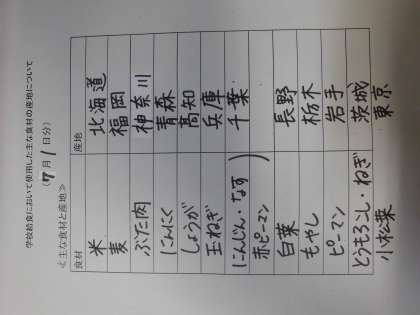 学校給食において使用した主な食材の産地について
(7月1日分)
≪主な食材と産地≫
食材 産地
米 北海道
麦 福岡
ぶた肉 神奈川
にんにく 青森
しょうが 高知
玉ねぎ 兵庫
にんじん・なす 千葉
赤ピーマン
白菜 長野
もやし 栃木
ピーマン 岩手
とうもろこし・ねぎ 茨城
小松菜 東京